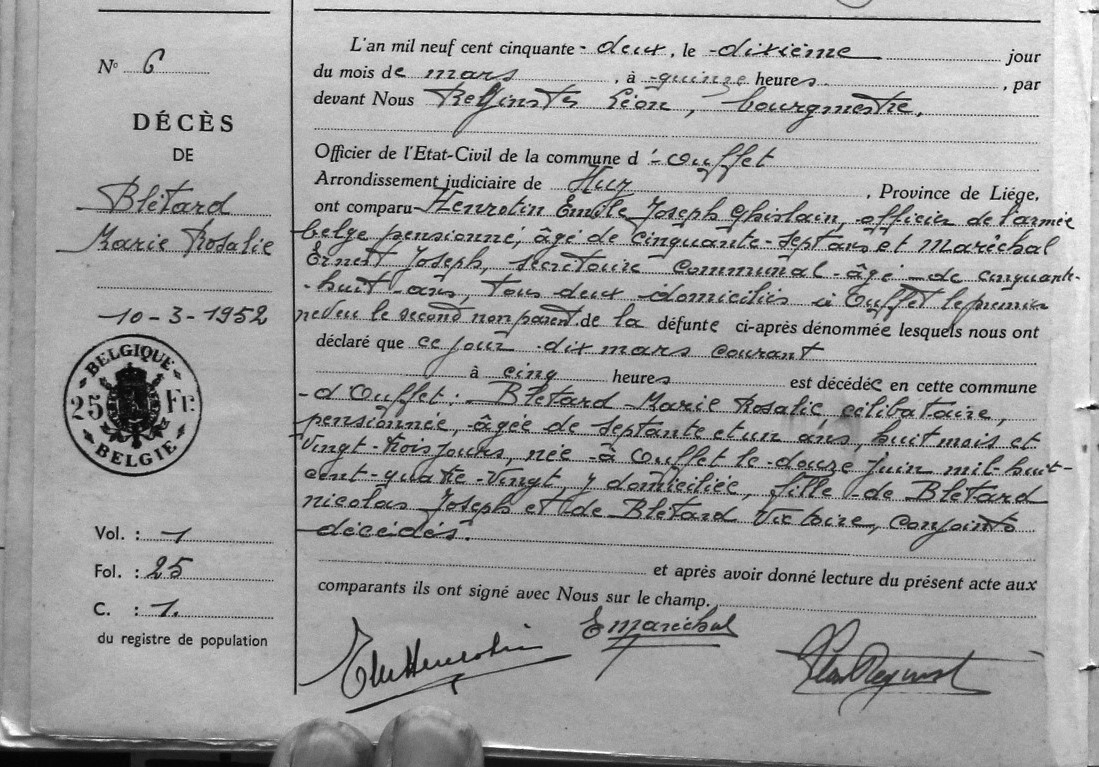 N° 6
DÉCÈS
DE
Blétard
Marie Rosalie
10-3-1952
BELGIQUE
25 Fr.
BELGIE
Vol. : 1
Fol. : 25
C. : 1.
du registre de population
L'an mil neuf cent cinquante-deux, le dixième jour
du mois de mars, à quinze heures, par
devant Nous Léon, bourgmestre,
Officier de l'Etat-Civil de la commune d'Ouffet
Arrondissement judiciaire de Huy, Province de Liége,
ont comparu Henrotin Emile Joseph Ghislain, officier de l'armée
belge pensionné, âgé de cinquante-sept ans et Maréchal
Ernest Joseph, secrétaire communal âgé de cinquante-
huit ans, tous deux domiciliés à Ouffet le premier
neveu le second non parent de la défunte ci-après dénommée lesquels nous ont
déclaré que ce jour dix mars courant
à cinq heures est décédée en cette commune
d'Ouffet : Blétard Marie Rosalie célibataire,
pensionnée, âgée de septante et un ans, huit mois et
vingt-trois jours, née à Ouffet le douze juin mil huit-
cent-quatre-vingt, y domiciliée, fille de Blétard
Nicolas Joseph et de Blétard Victoire, conjoints
décédés.
et après avoir donné lecture du présent acte aux
comparants ils ont signé avec Nous sur le champ.
EMaréchal